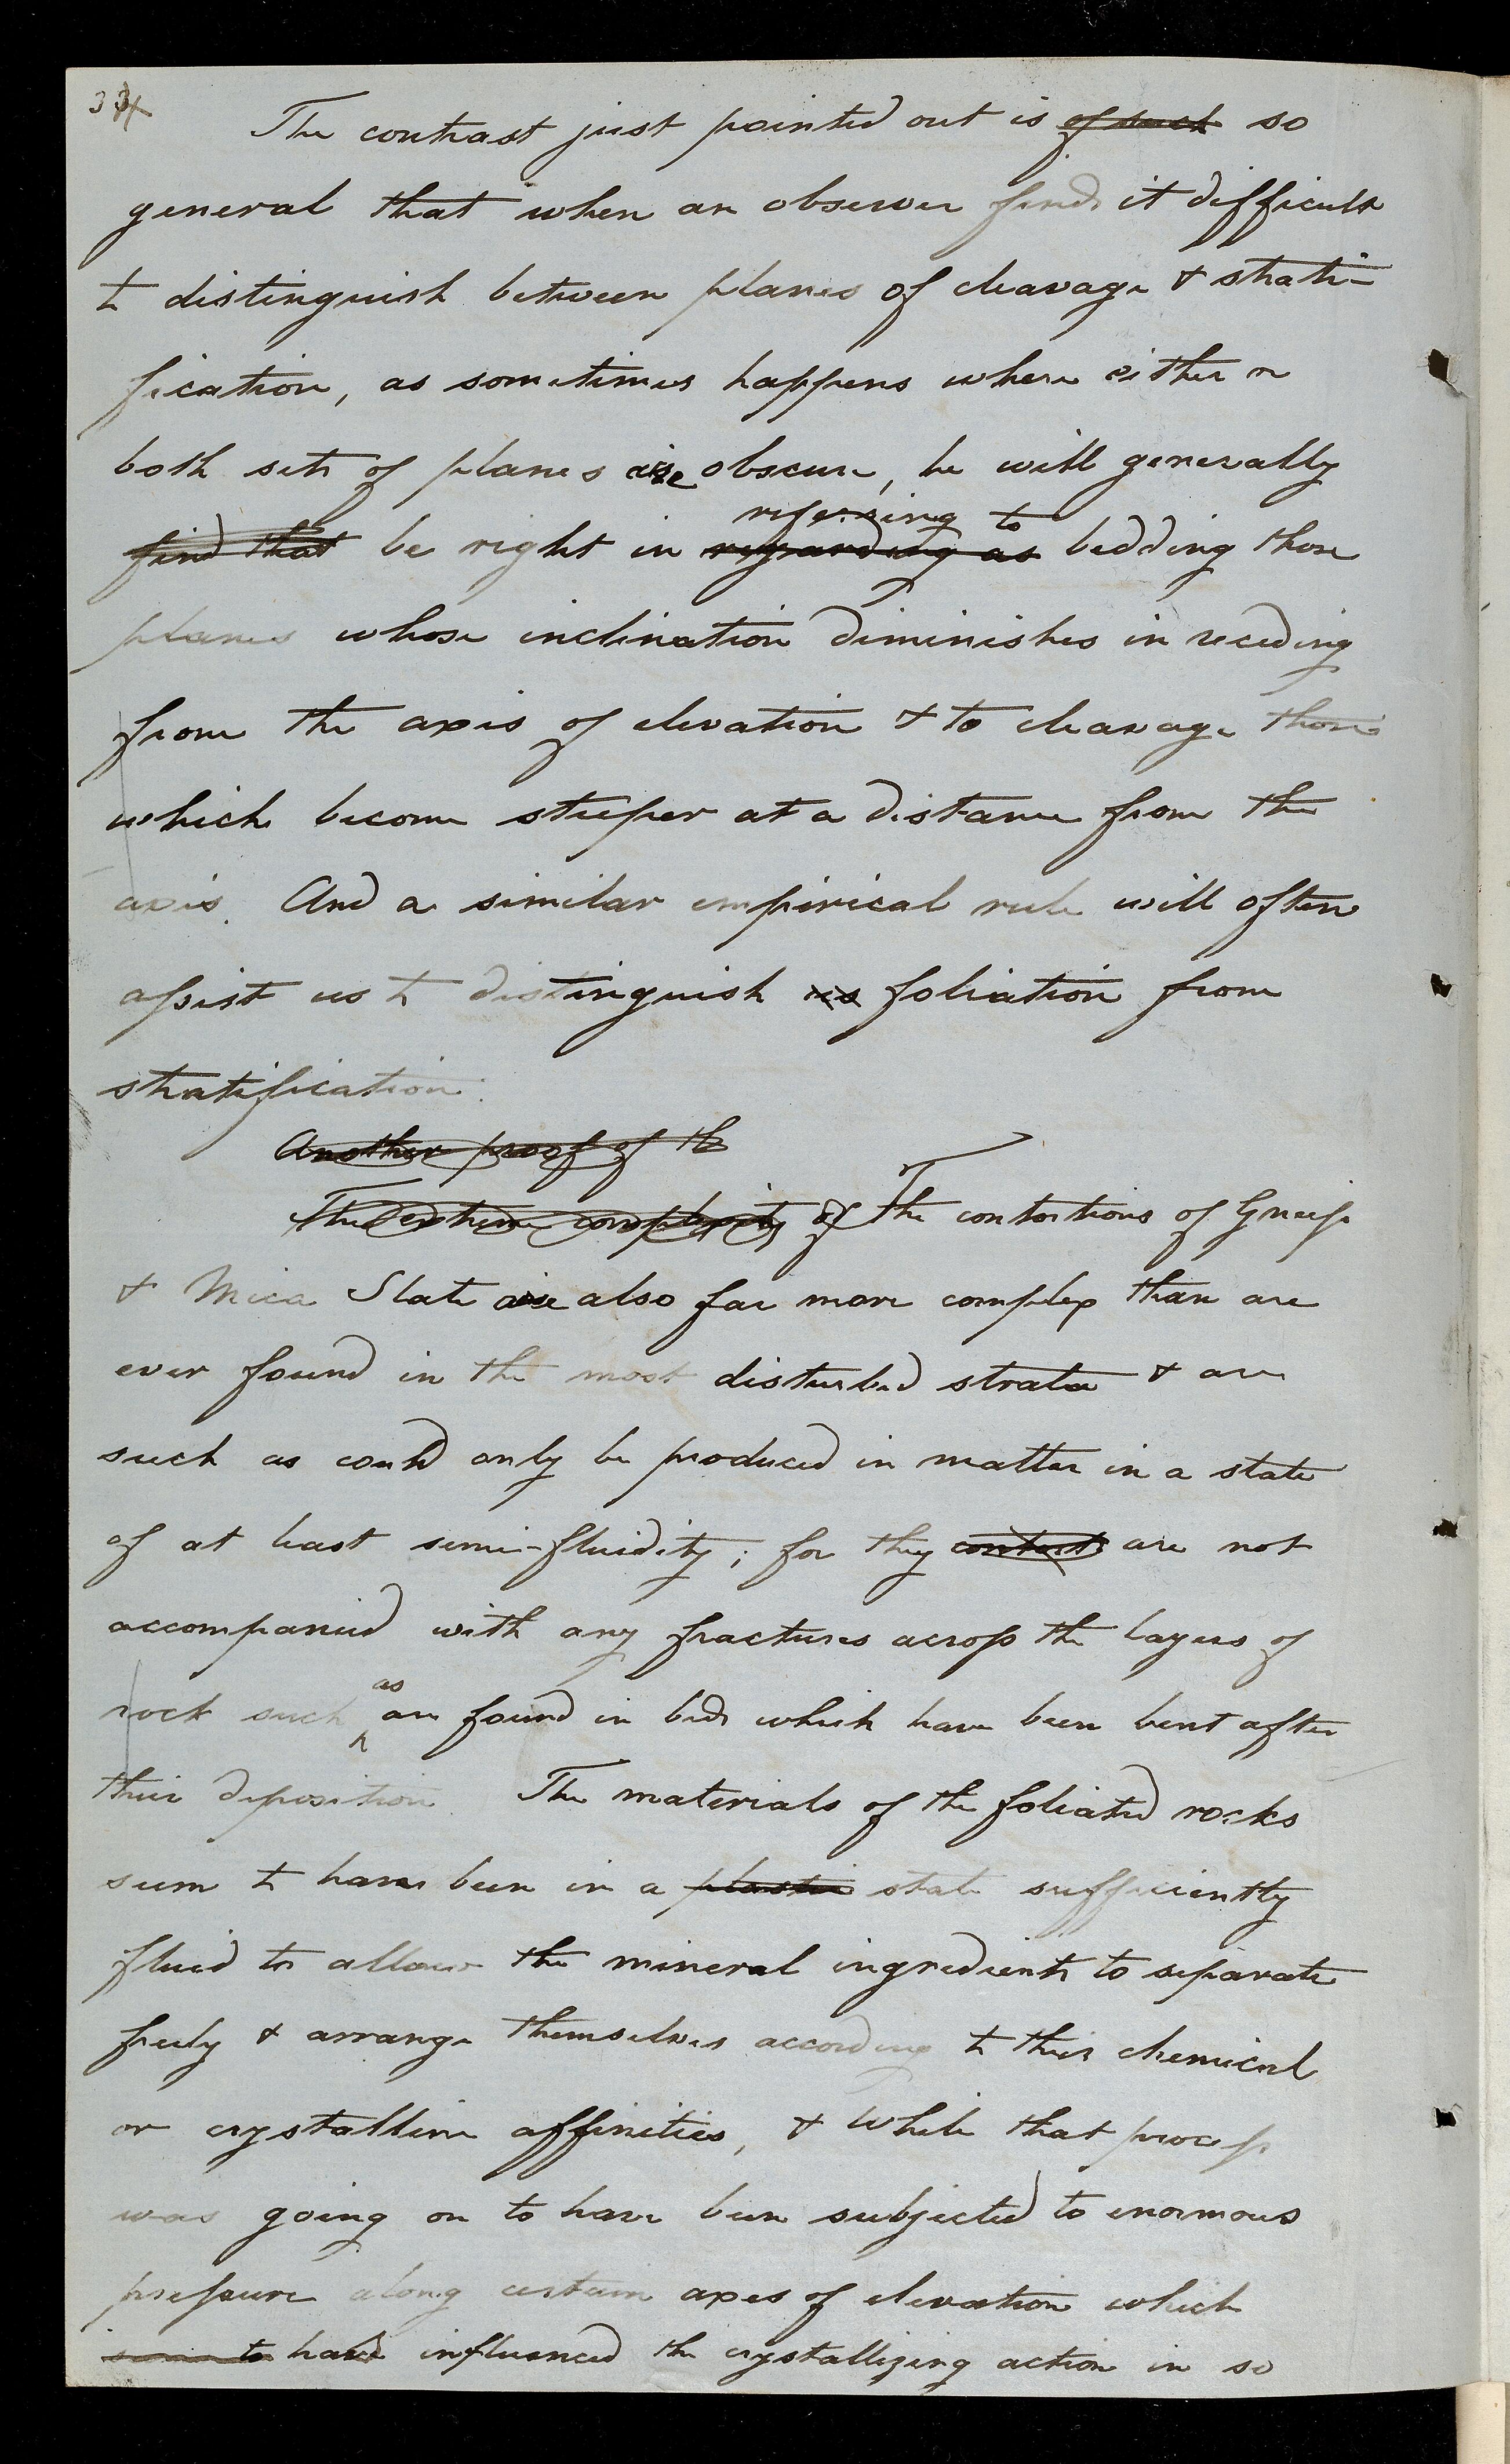 The contrast just pointed out is of such so
general that when an observer finds it difficult
to distinguish between planes of cleavage & strati-
fication, as sometimes happens where either or
both sets of planes are obscure, he will generally
referring to
find that be right in regarding as bedding those
planes whose inclination diminishes in receding
from the axis of elevation & to cleavage those
which become steeper at a distance from the
axis. And a similar empirical rule will often
assist us to distinguish foliation from
stratification.
Another proof of th
The extreme complexity of The contortions of Gneiss
& Mica Slate are also far more complex than are
ever found in the most disturbed strata & are
such as could only be produced in matter in a state
of at least semi-fluidity; for they are not
accompanied with any fractures across the layers of
as
rock such are found in beds which have been bent after
their deposition. The materials of the foliated rocks
seem to have been in a plastic state sufficiently
fluid to allow the mineral ingredients to separate
freely & arrange themselves according to their chemical
or crystalline affinities, & while that process
was going on to have been subjected to enormous
pressure along certain axes of elevation which
seem to have influenced the crystallizing action in so